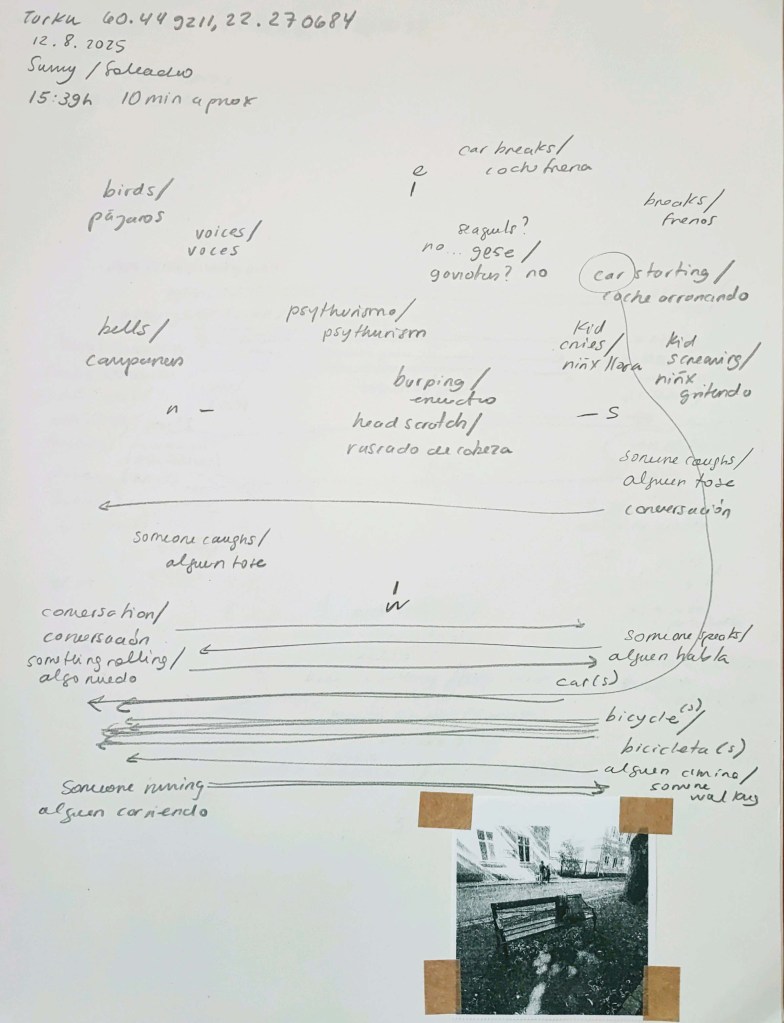 Turku 60.449211, 22.270684
12.8.2025
Sunny / Soleado
15:39h 10 min aprox
car breaks/
coche frena
e
birds/
pájaros
breaks/
frenos
voices/
voces
seaguls?
no... gese /
gaviotas? no
car starting /
coche arrancando
psythurismo/
psythurism
bells/
campanas
kid
cries/
niñx llora
kid
screaming/
niñx
gritando
burping /
eructo
n –
– S
head scratch/
rascado de cabeza
somone caughs/
alguien tose
conversación
someone caughs/
alguien tose
w
conversation/
conversación
someone speaks/
alguien habla
something rolling/
algo ruedo
car(s)
bicycle(s)/
bicicleta(s)
alguien camina/
somone
walking
Someone runing
alguien corriendo